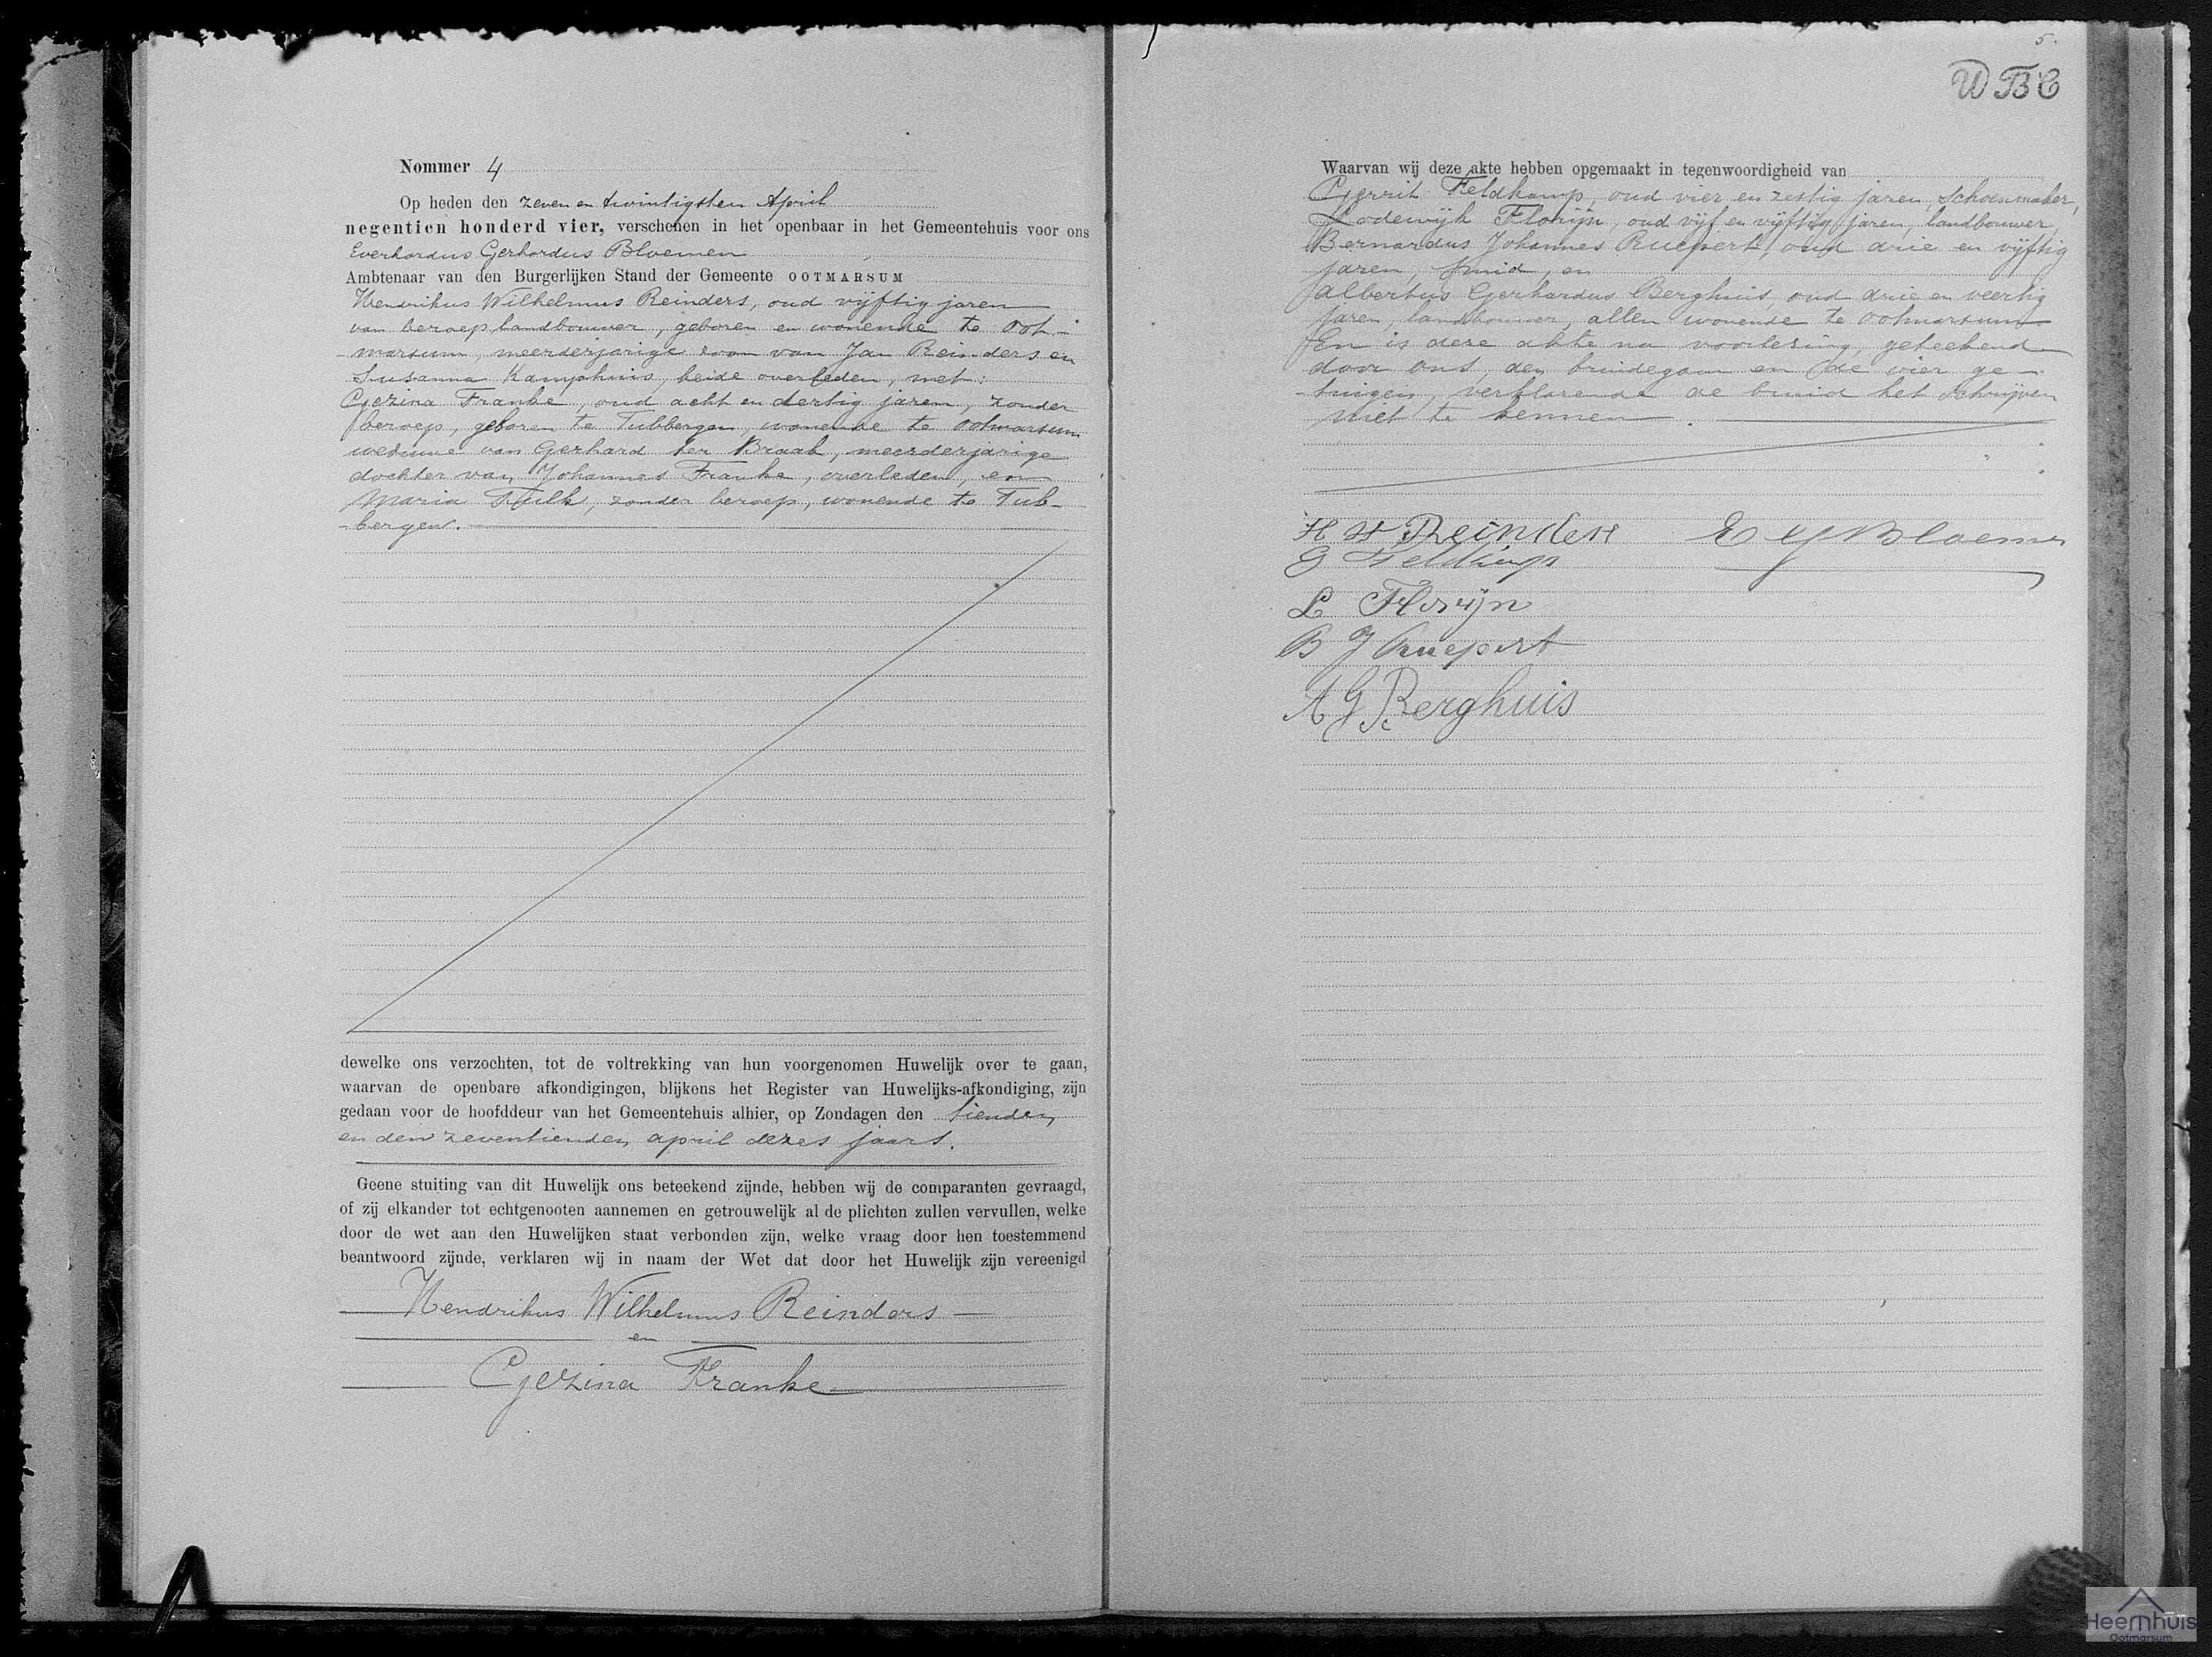 Nommer 4
Op heden den zeven en twintigsten April
negentien honderd vier, verschenen in het openbaar in het Gemeentehuis voor ons
Everhardus Gerhardus Bloemen
Ambtenaar van den Burgerlijken Stand der Gemeente OOTMARSUM
Hendrikus Wilhelmus Reinders, oud vijftig jaren
van beroep landbouwer, geboren en wonende te Oot-
marsum, meerderjarige zoon van Jan Reinders en
Susanna Kamphuis, beide overleden, met:
Gezina Franke, oud acht en dertig jaren, zonder
beroep, geboren te Tubbergen, wonende te Ootmarsum
weduwe van Gerhard ter Braak, meerderjarige
dochter van Johannes Franke, overleden, en
Maria , zonder beroep, wonende te Tub-
bergen.
dewelke ons verzochten, tot de voltrekking van hun voorgenomen Huwelijk over te gaan,
waarvan de openbare afkondigingen, blijkens het Register van Huwelijks-afkondiging, zijn
gedaan voor de hoofddeur van het Gemeentehuis alhier, op Zondagen den tienden
en den zeventienden april dezes jaars.
Geene stuiting van dit Huwelijk ons beteekend zijnde, hebben wij de comparanten gevraagd,
of zij elkander tot echtgenooten aannemen en getrouwelijk al de plichten zullen vervullen, welke
door de wet aan den Huwelijken staat verbonden zijn, welke vraag door hen toestemmend
beantwoord zijnde, verklaren wij in naam der Wet dat door het Huwelijk zijn vereenigd
Hendrikus Wilhelmus Reinders
en
Gezina Franke
5.
WBC
Waarvan wij deze akte hebben opgemaakt in tegenwoordigheid van
Gerrit Feldkamp, oud vier en zestig jaren, Schoenmaker,
Lodewijk Florijn, oud vijf en vijftig jaren, landbouwer,
Bernardus Johannes Ruepert, oud drie en vijftig
jaren, smid, en
Albertus Gerhardus Berghuis, oud drie en veertig
jaren, landbouwer, allen wonende te Ootmarsum
En is deze akte na voorlezing, geteekend
door ons, den bruidegom en de vier ge-
tuigen, verklarende de bruid het schrijven
niet te kennen.
H W Reinders E G Bloemen
G Feldkamp
L Florijn
B J Ruepert
A G Berghuis
Heemhuis
Ootmarsum